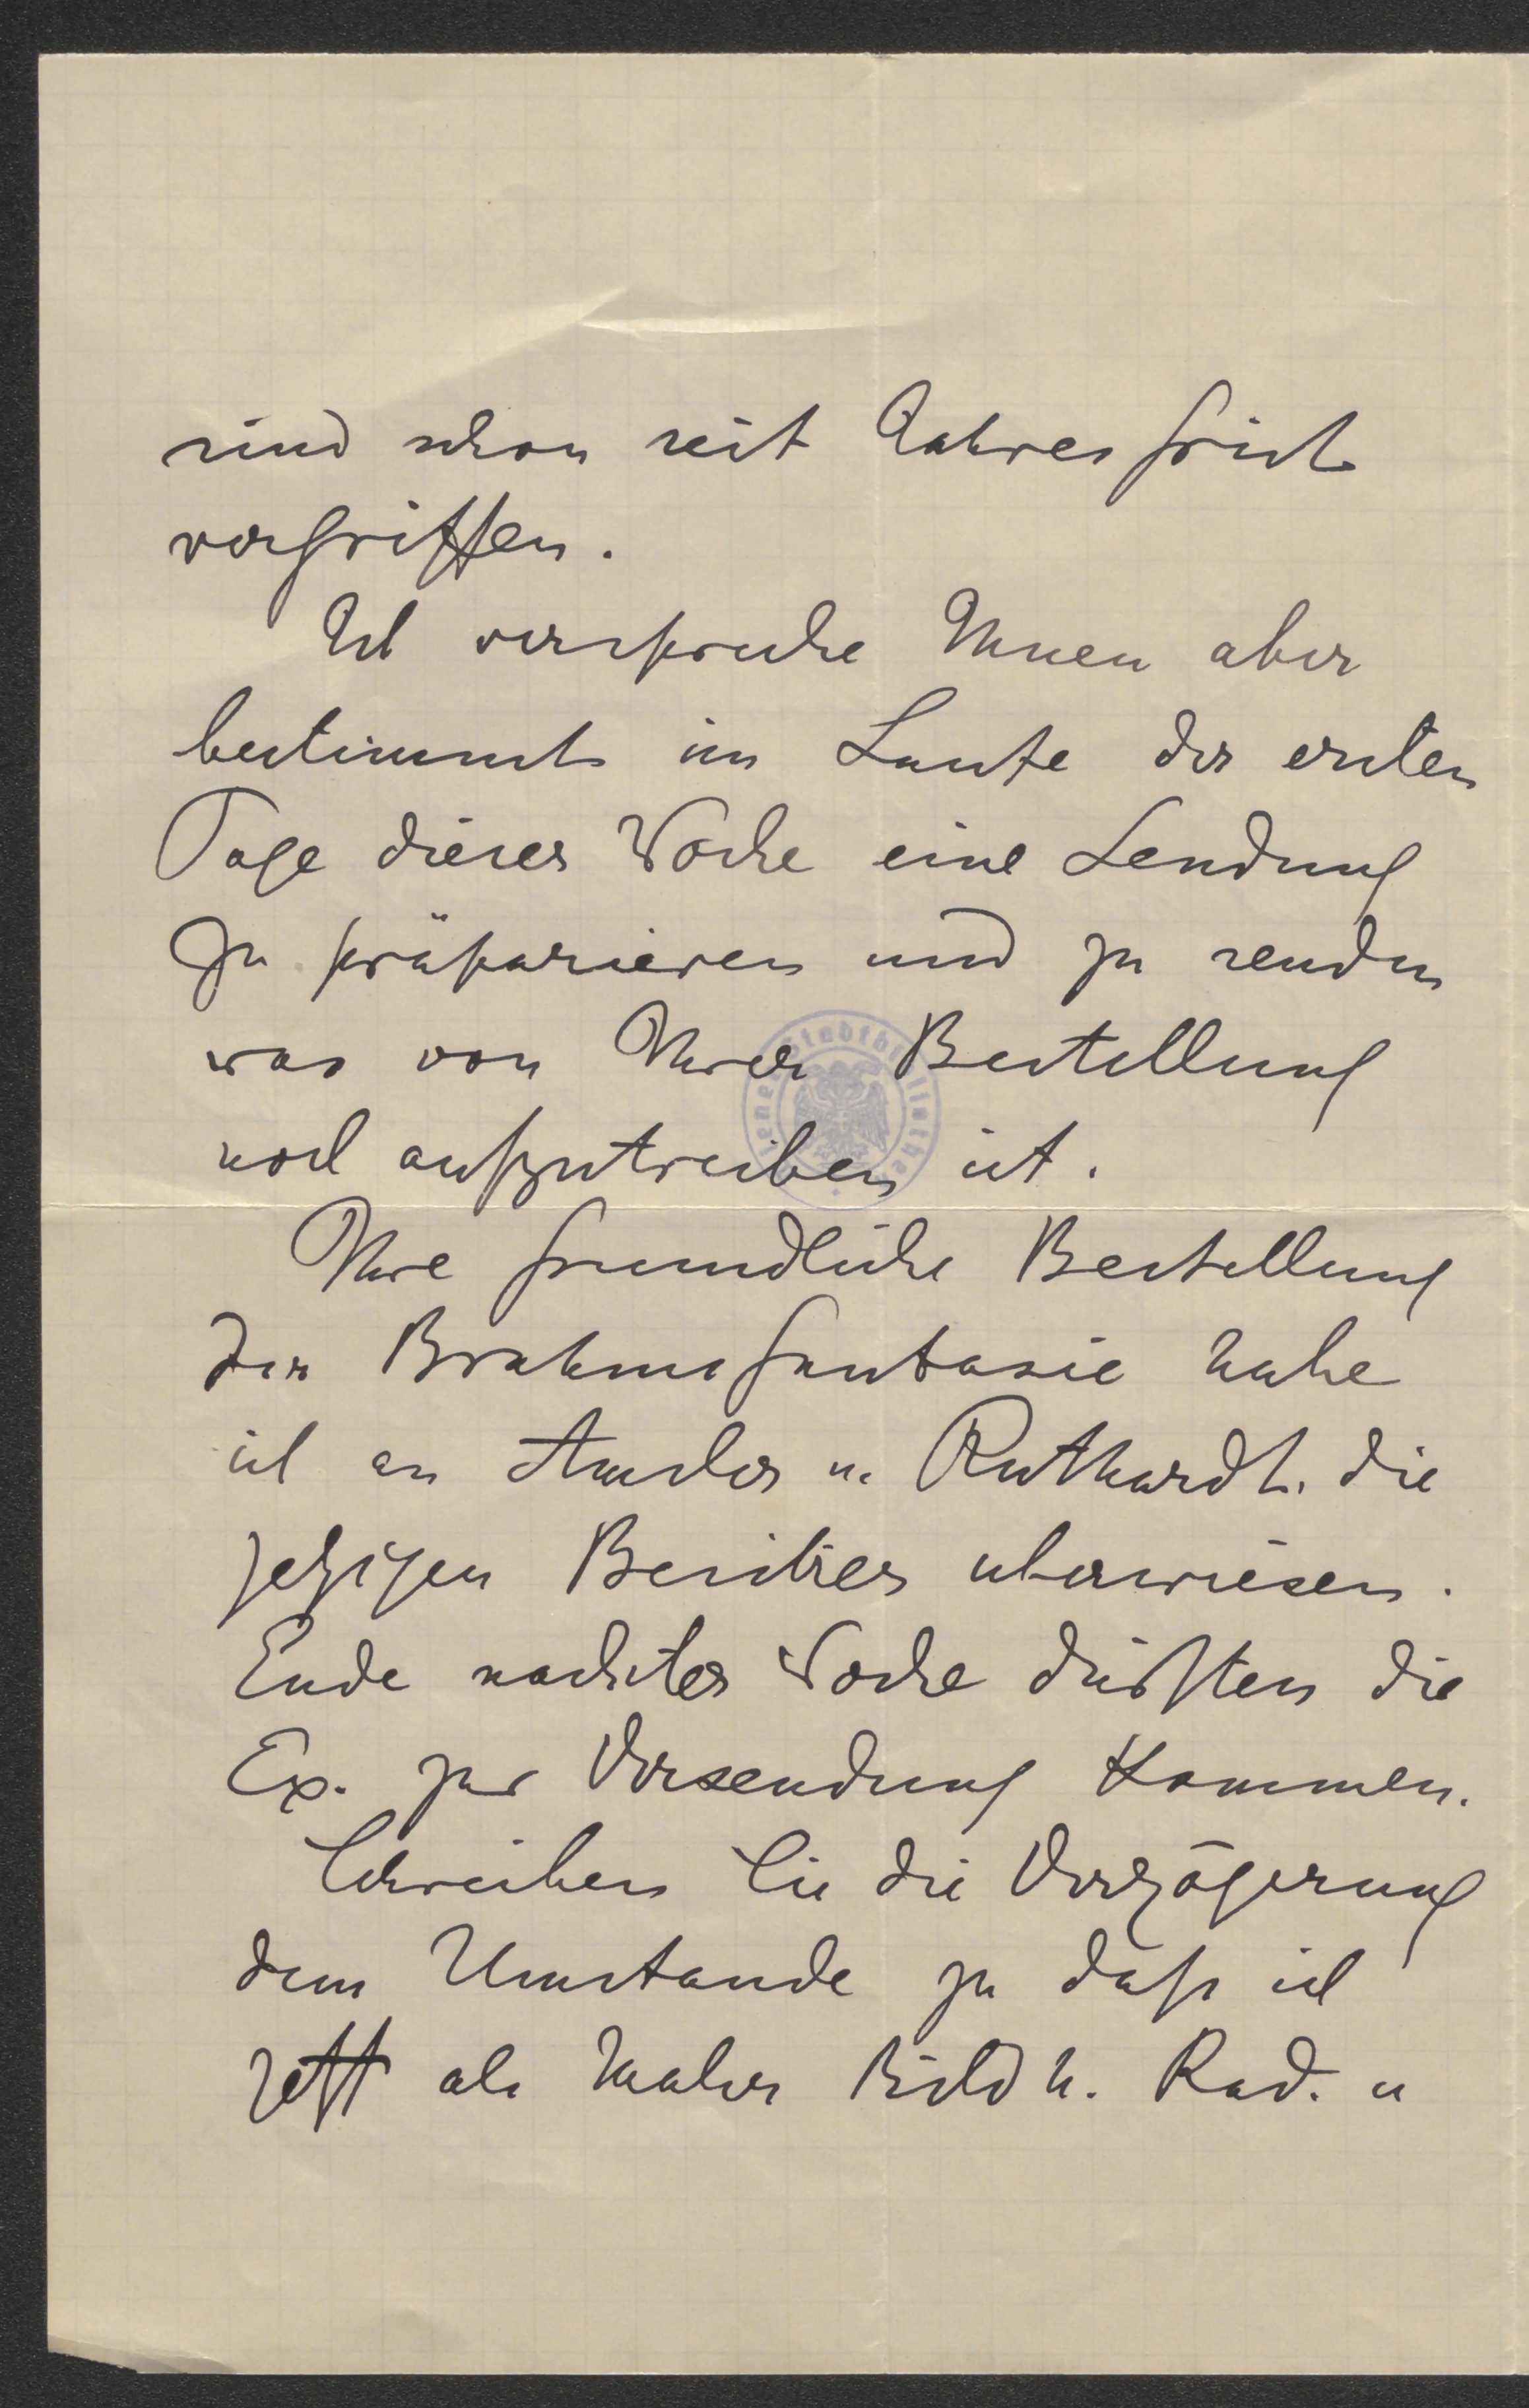 sind schon seit Jahresfrist
vergriffen.
Ich verspreche Ihnen aber
bestimmt im Laufe der ersten
Tage dieser Woche eine Sendung
zu präparieren und zu senden
was von Ihrer Bestellung
noch aufzutreiben ist.
Ihre freundliche Bestellung
der Brahmsfantasie habe
ich an Amsler u. Ruthardt. die
jetzigen Besitzer uberwiesen.
Ende nachster Woche dürften die
Ex. zur Versendung kommen.
Schreiben Sie die Verzögerung
dem Umstande zu dass ich
jetzt als Maler Bildh. Rad. u
Wiener Stadtbibliothek